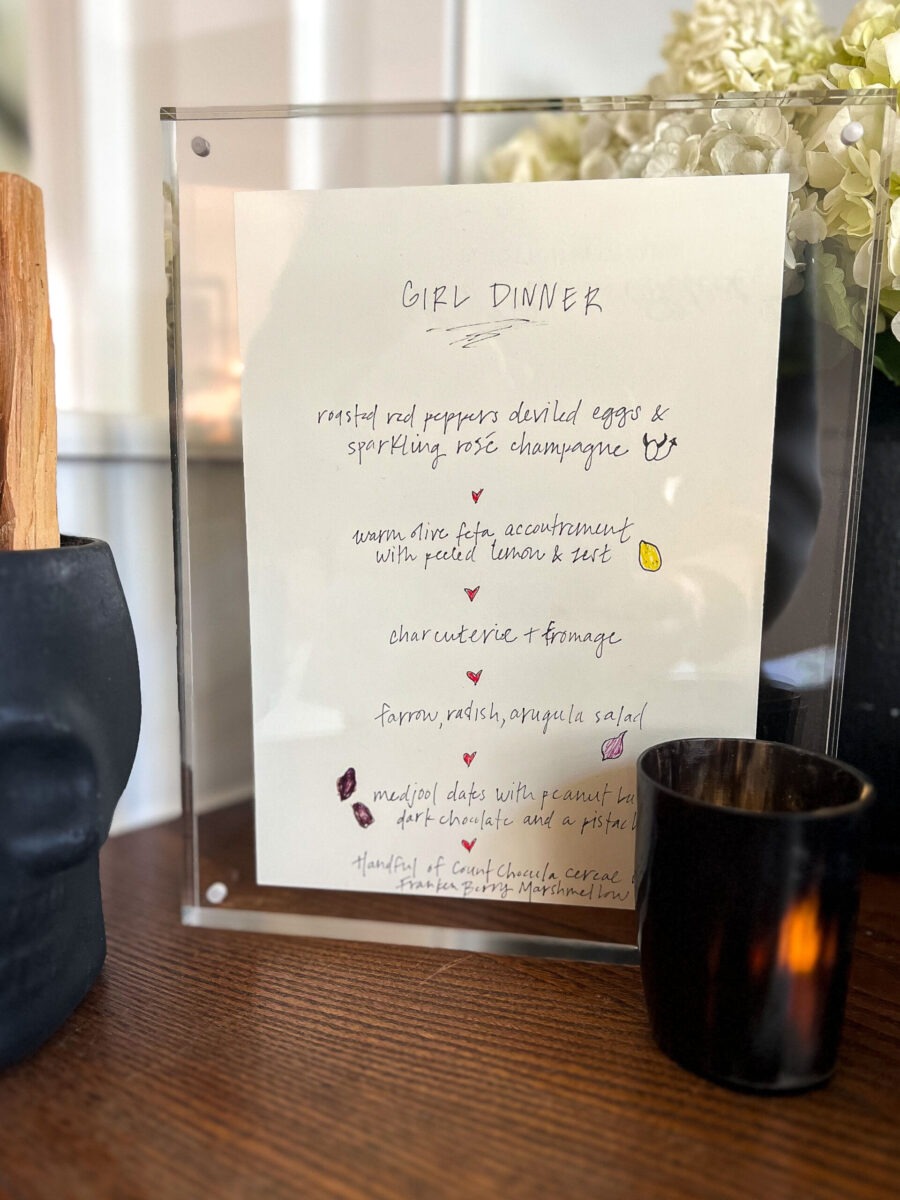 GIRL DINNER
roasted red peppers deviled eggs &
sparkling rosé champagne
warm olive feta accoutrement
with peeled lemon & zest
charcuterie + fromage
farrow, radish, arugula salad
medjool dates with peanut bu
dark chocolate and a pistach
Handful of Count Chocula cereal
Franken Berry Marshmellow